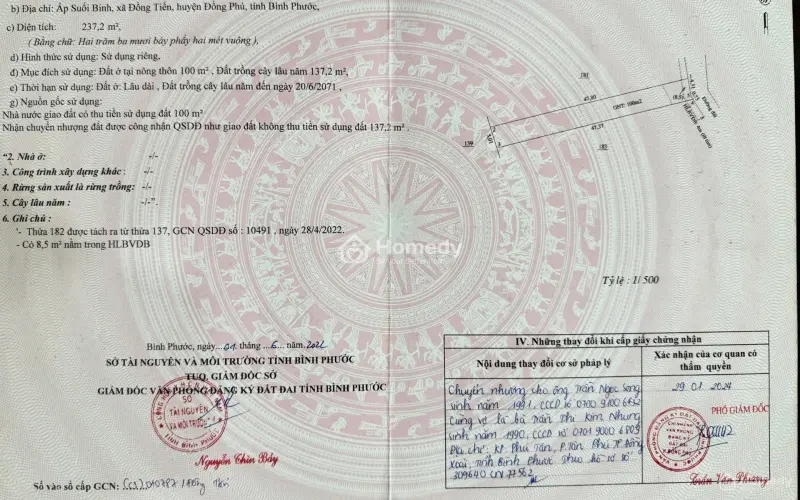 b) Địa chỉ: Ấp Suối Binh, xã Đồng Tiến, huyện Đồng Phú, tỉnh Bình Phước,
c) Diện tích: 237,2 m²,
( Bằng chữ: Hai trăm ba mươi bảy phẩy hai mét vuông ),
d) Hình thức sử dụng: Sử dụng riêng,
đ) Mục đích sử dụng: Đất ở tại nông thôn 100 m² , Đất trồng cây lâu năm 137,2 m²,
e) Thời hạn sử dụng: Đất ở: Lâu dài , Đất trồng cây lâu năm đến ngày 20/6/2071 ,
g) Nguồn gốc sử dụng:
Nhà nước giao đất có thu tiền sử dụng đất 100 m²
Nhận chuyển nhượng đất được công nhận QSDĐ như giao đất không thu tiền sử dụng đất 137,2 m² .
“2. Nhà ở: -/-
3. Công trình xây dựng khác : -/-
4. Rừng sản xuất là rừng trồng: -/-
5. Cây lâu năm : -/-”.
6. Ghi chú :
'- Thửa 182 được tách ra từ thửa 137, GCN QSDĐ số : 10491 , ngày 28/4/2022.
- Có 8,5 m² nằm trong HLBVDB
181
47,80
ONT: 100m2
47,37
183
139
5,01
Homedy
Tỷ lệ : 1/ 500
Bình Phước, ngày 01 tháng 6 năm 2022
SỞ TÀI NGUYÊN VÀ MÔI TRƯỜNG TỈNH BÌNH PHƯỚC
TUQ. GIÁM ĐỐC SỞ
GIÁM ĐỐC VĂN PHÒNG ĐĂNG KÝ ĐẤT ĐAI TỈNH BÌNH PHƯỚC
SỞ
TÀI NGUYÊN
VÀ MÔI TRƯỜNG
TỈNH BÌNH PHƯỚC
Nguyễn Chín Bảy
Số vào sổ cấp GCN:
IV. Những thay đổi khi cấp giấy chứng nhận
Nội dung thay đổi cơ sở pháp lý
Xác nhận của cơ quan có
thẩm quyền
Chuyển nhượng cho ông Trần Ngọc Song
sinh năm 1991, CCCD số
Cùng vợ là bà Trần Thị Kim Nhung
sinh năm 1990, CCCD số
Địa chỉ: KP Phú Tân, P. Tân Phú TP Đồng
Xoài, tỉnh Bình Phước theo hồ sơ số
29 01 2024
PHÓ GIÁM ĐỐC
CHI NHÁNH
VĂN PHÒNG
ĐĂNG KÝ
ĐẤT ĐAI
Trần Văn Phương